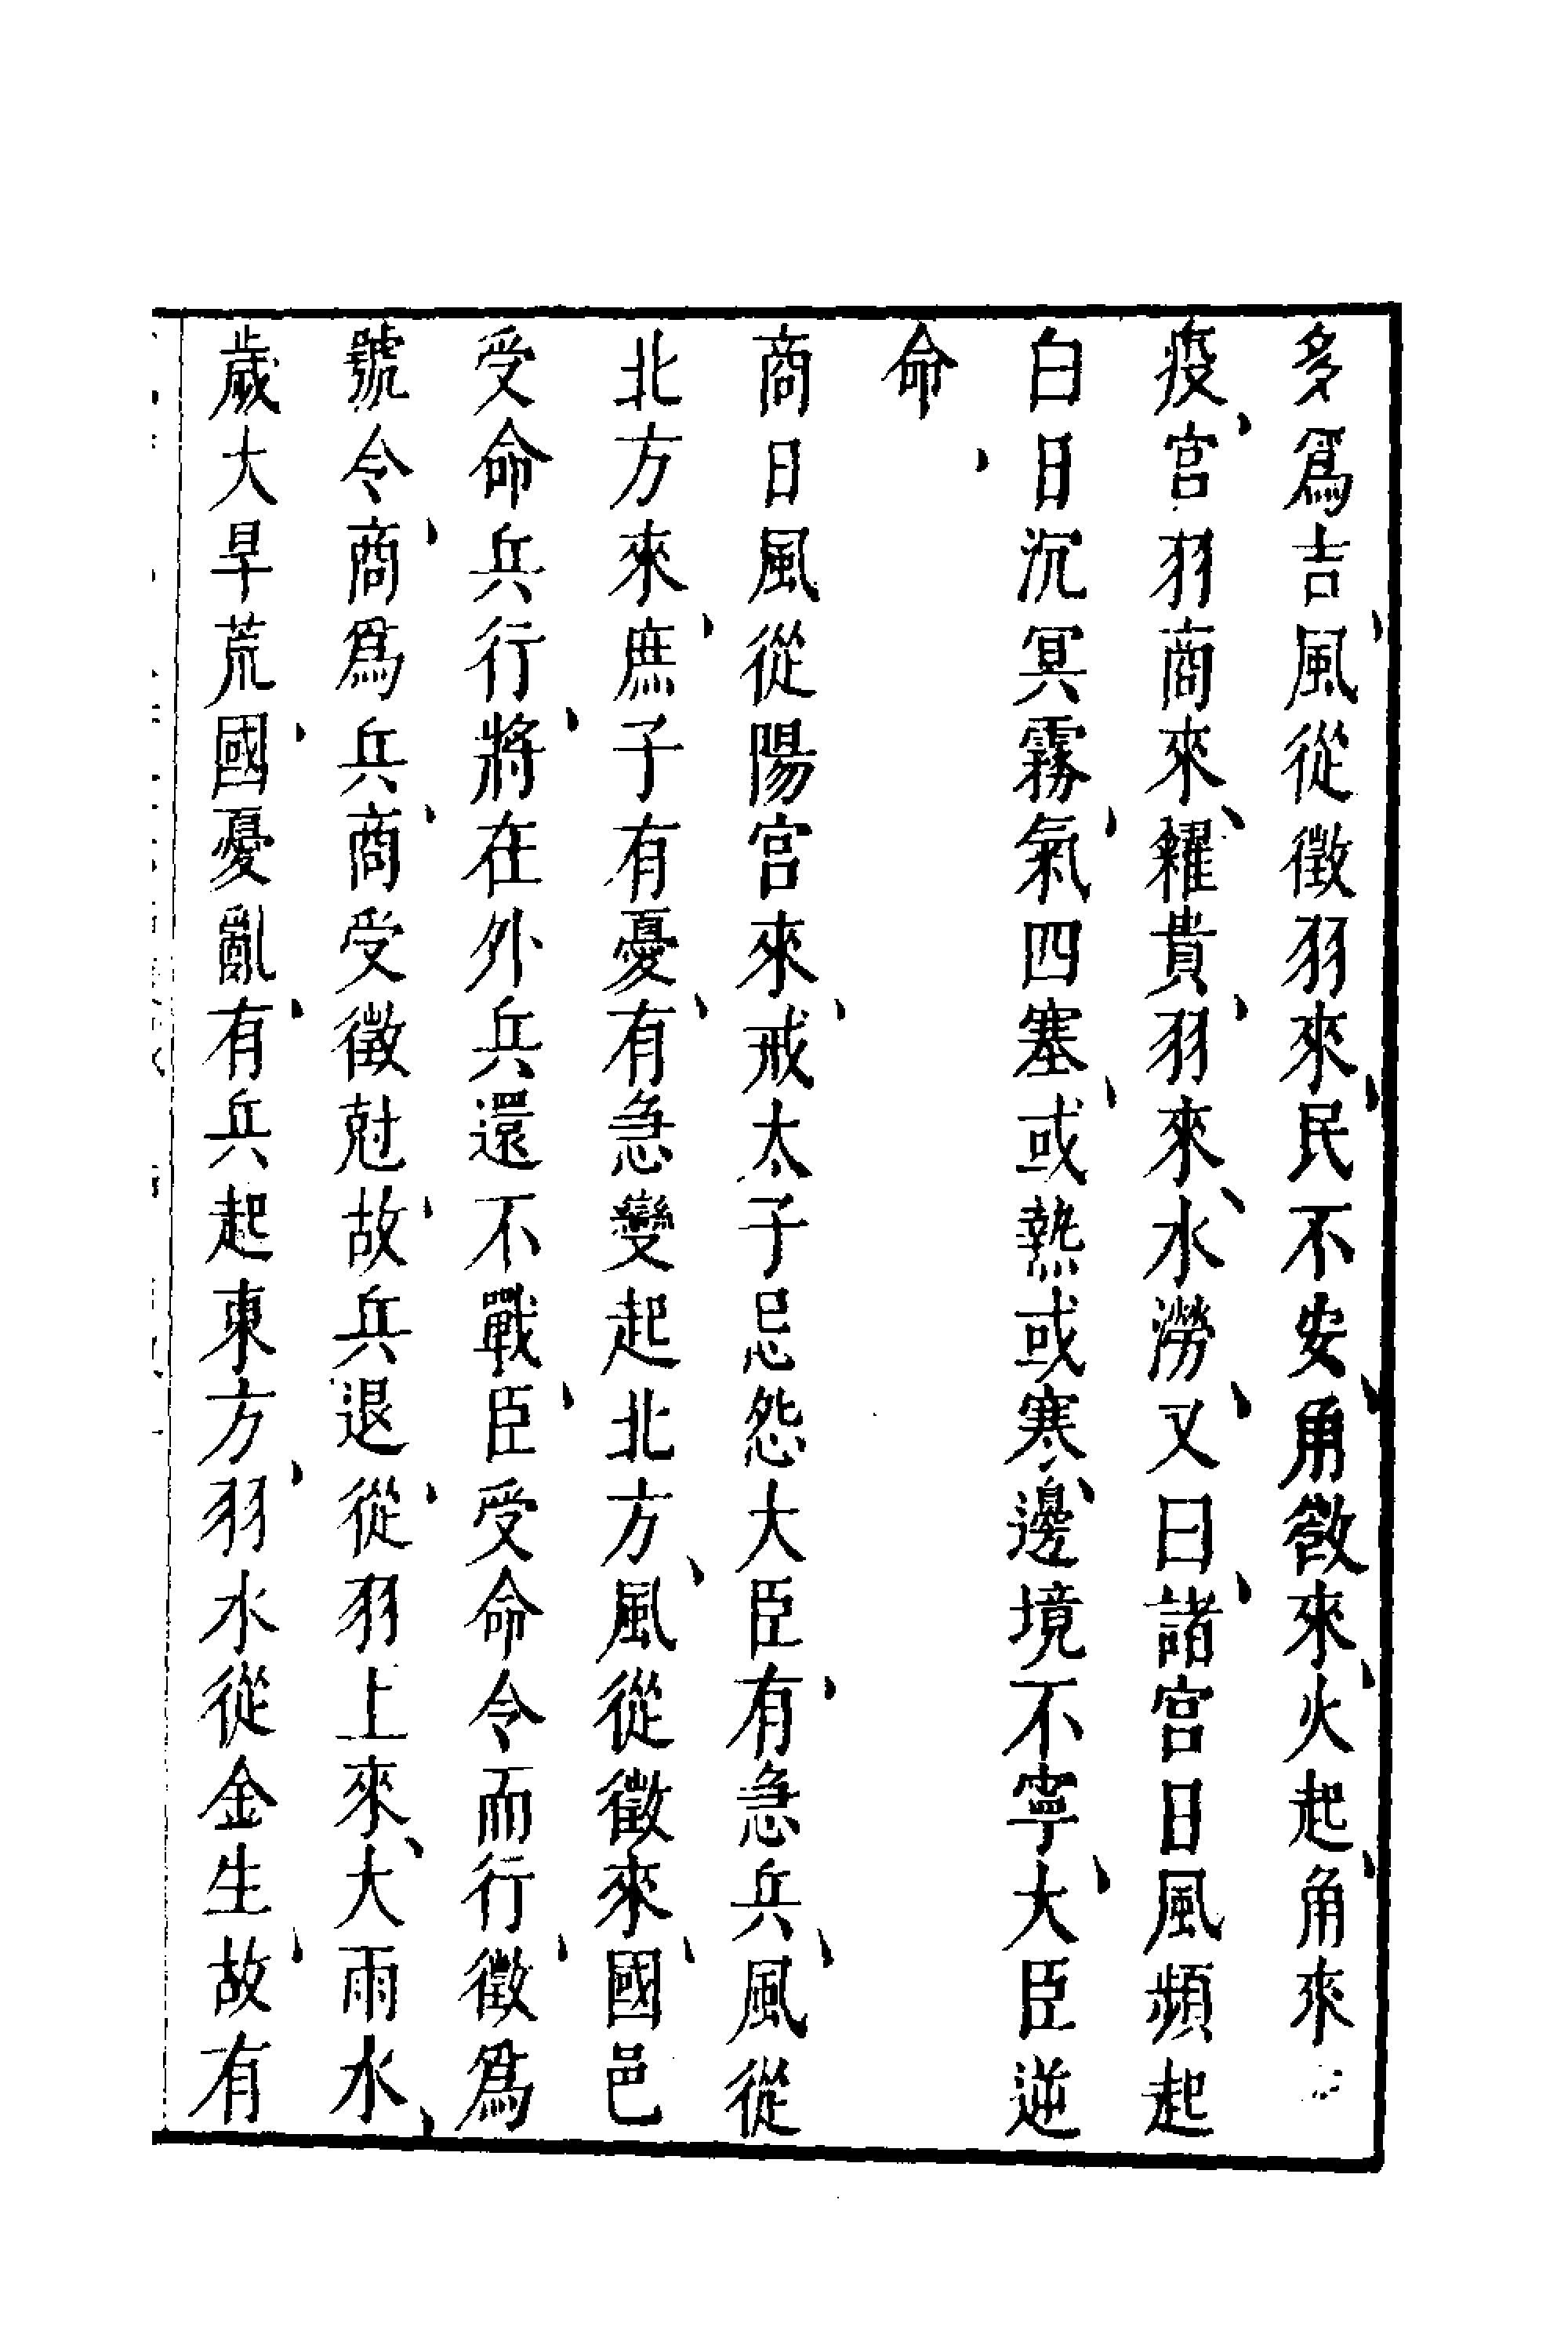 多爲吉風從徵羽來民不安角徵來火起角來
疫宫羽商來糴貴羽來水澇又曰諸宫日風頻起
白日沉冥霧氣四塞或熱或寒邊境不寧大臣逆
命
商日風從陽宫來戒太子忌怨大臣有急兵風從
北方來庶子有憂有急變起北方風從徵來國邑
受命兵行將在外兵還不戰臣受命令而行徵爲
號令商爲兵商受徵尅故兵退從羽上來大雨水
歲大旱荒國憂亂有兵起東方羽水從金生故有